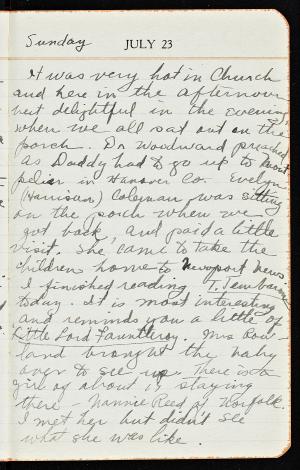 Sunday JULY 23
It was very hot in Church
and here in the afternoon
but delightful in the evening,
when we all sat out on the
porch. Dr Woodward preached
as Daddy had to go up to Mont
pelier in Hanover Co. Evelyn
(Harrison) Coleman was sitting
on the porch when we
got back, and paid a little
visit. She came to take the
children home to Newport News
I finished reading T. Tembarom
today. It is most interesting
and reminds you a little of
Little Lord Fauntleroy. Mrs Row-
land brought the baby
over to see us. There is a
girl of about 17 staying
there - Nannie Reed of Norfolk.
I met her but didn't see
what she was like.